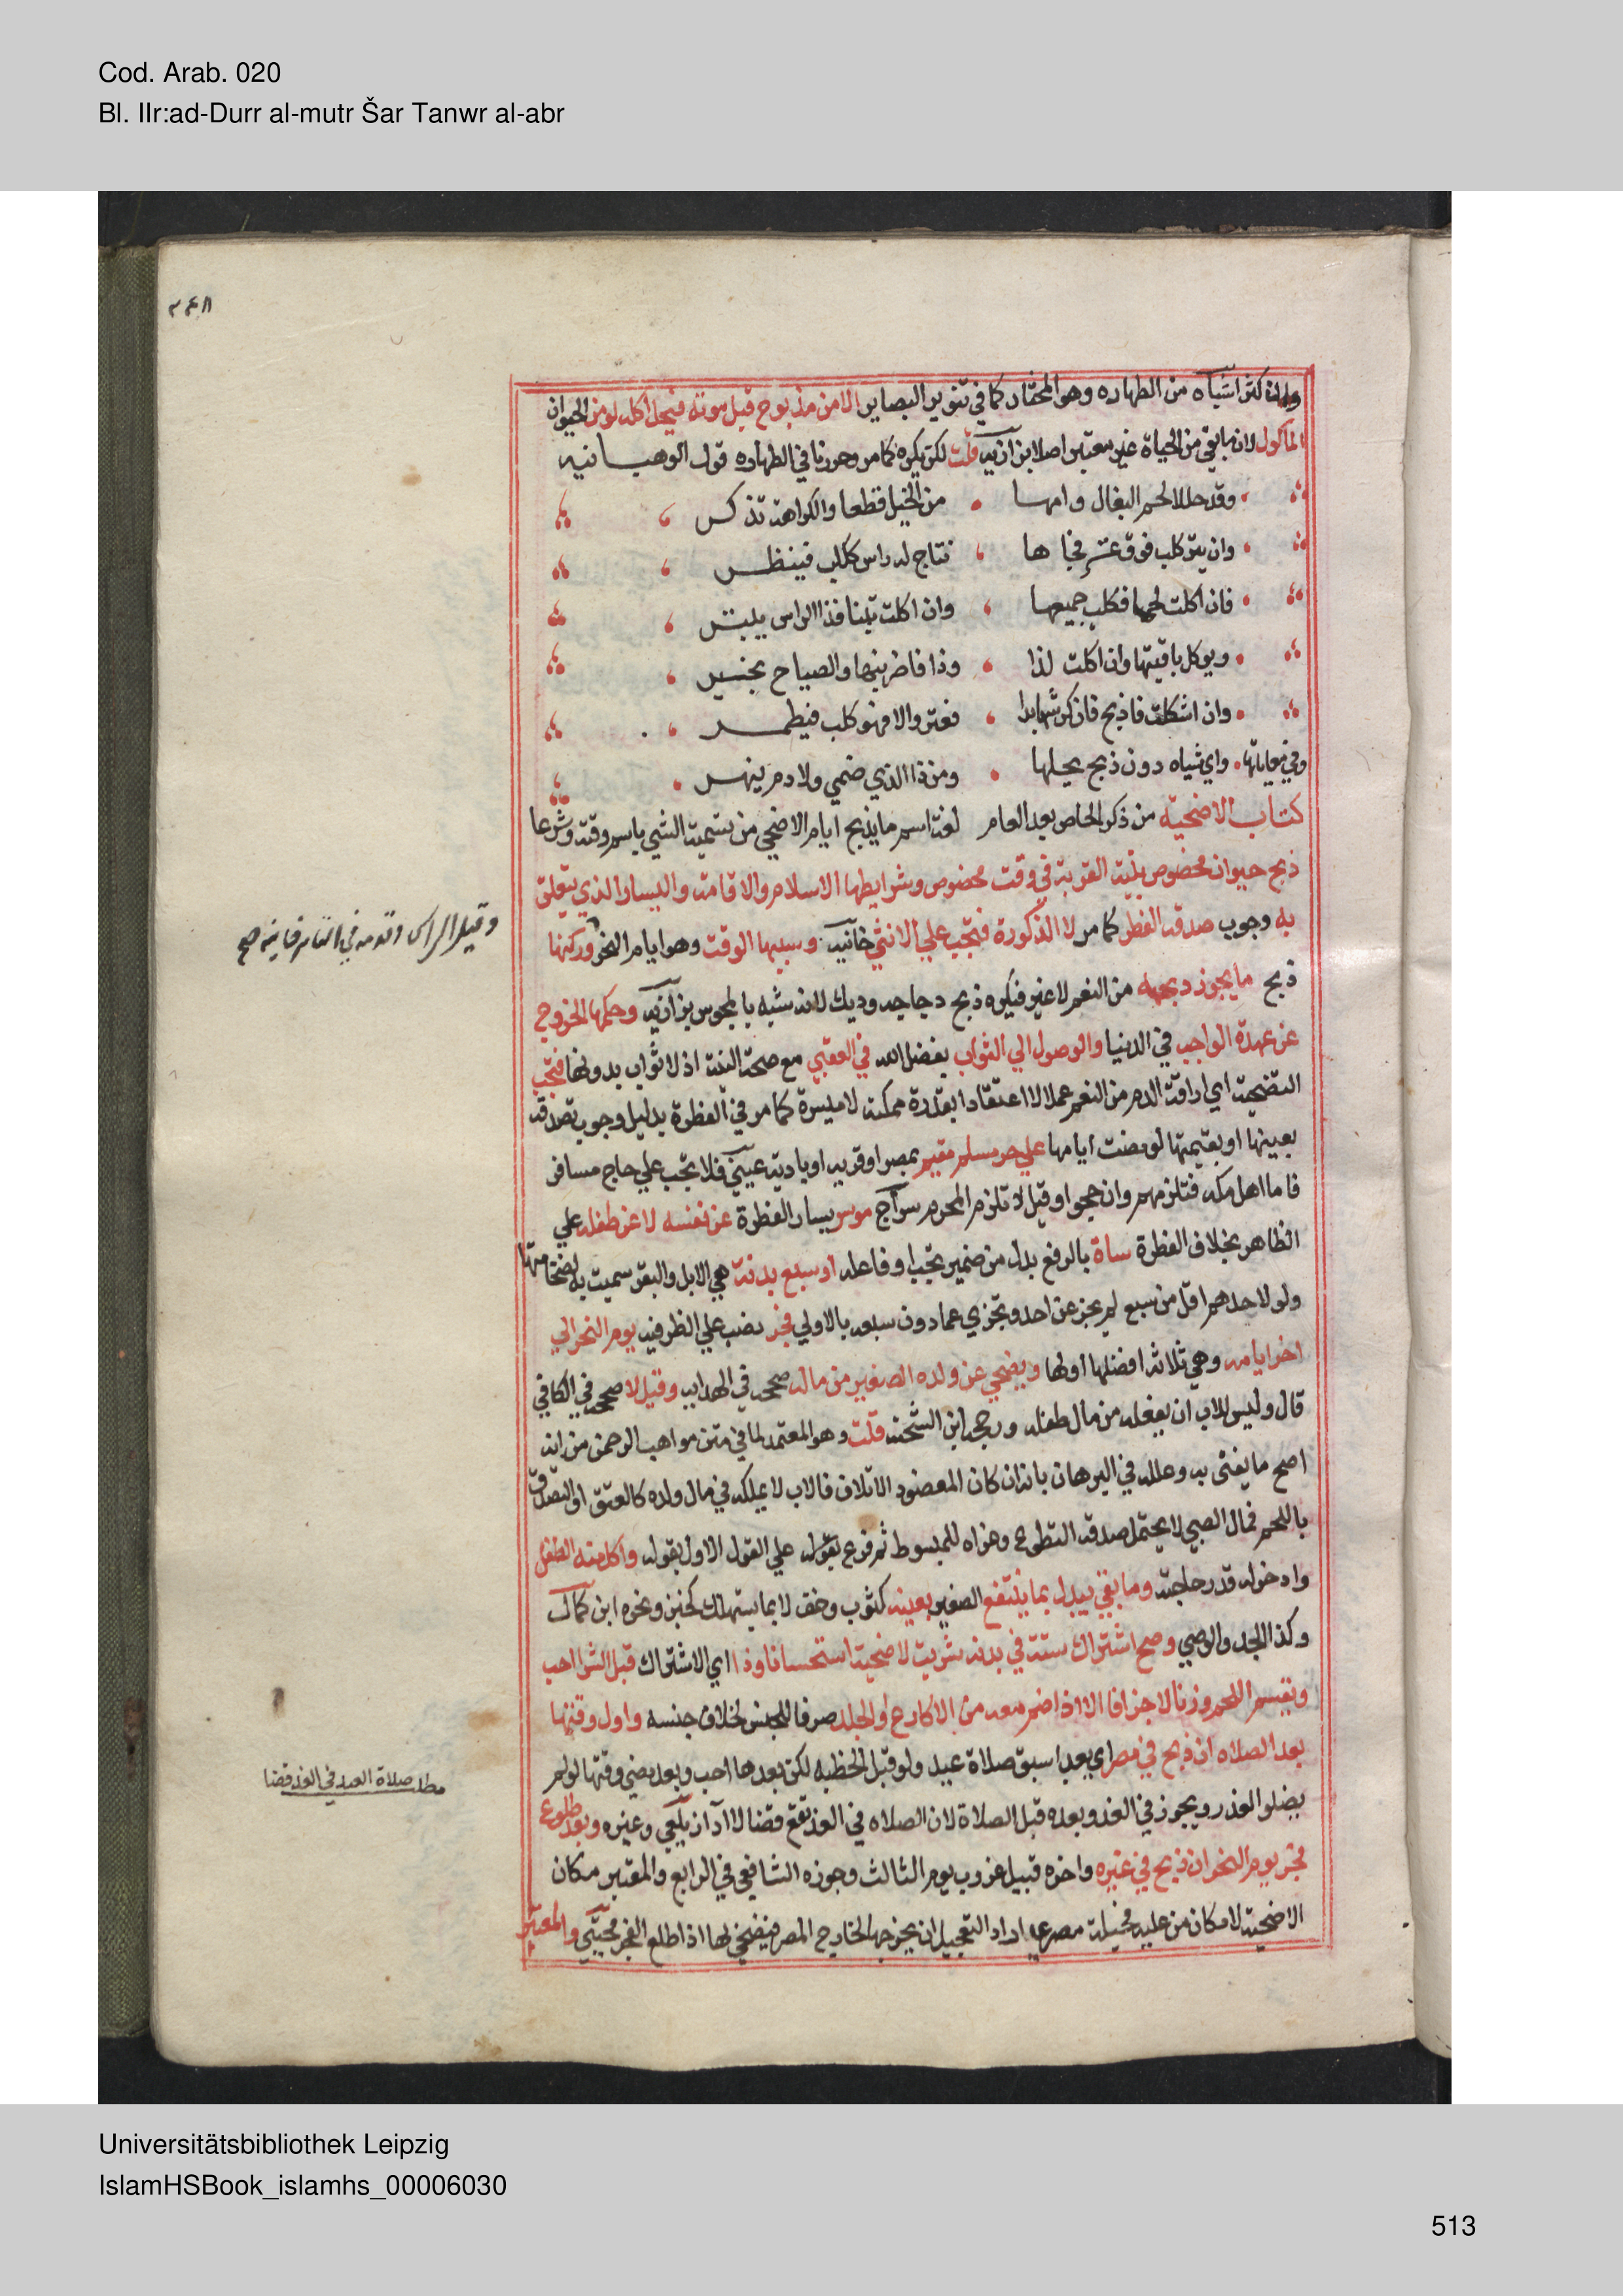 Cod. Arab. 020
Bl. IIr:ad-Durr al-mutr Šar Tanwr al-abr
٢٤٨
وان كثر اشباه من الطهاره وهو المختار كما في تنوير البصاير الا من مذبوح قبل موته فيحل اكله لو من الحيوان
الماكول لان ما بقي من الحياة غير معتبر اصلا بزازيه قلت لكن يكره كما مر وحررنا في الطهاره قول الوهبانيه
وقد حللا لحم البغال وامها من الخيل قطعا والكراهة تذكر
وان ينز كلب فوق عنز فجا ها نتاج له راس ككلب فينظر
فان اكلت لحما فكلب جميعها وان اكلت تبنا فذا الراس يبتر
ويوكل باقيتها وان اكلت لذا وذا فاضربنها والصياح يخبر
وان اشكلت فاذبح فان كرشها بدا فعنز والا فهو كلب فيطمر
وفي معاياتها واي شياه دون ذبح يحلها ومن ذا الذي ضحي ولا دم ينهر
كتاب الاضحية من ذكر الخاص بعد العام لغة اسم ما يذبح ايام الاضحي من تسمية الشي باسم وقته وشرعا
ذبح حيوان مخصوص بنية القربة في وقت مخصوص وشرايطها الاسلام والاقامة واليسار الذي يتعلق
به وجوب صدقة الفطر كما مر لا الذكورة فتجب علي الانثي خانيه وسببها الوقت وهو ايام النحر وركنها
وقيل الراس وقدمه في التتارخانيه صح
ذبح ما يجوز ذبحه من النعم لا غير فيكره ذبح دجاجه وديك لانه تشبه بالمجوس بزازيه وحكمها الخروج
عن عهدة الواجب في الدنيا والوصول الي الثواب بفضل الله في العقبي مع صحة النية اذ لا ثواب بدونها فتجب
التضحية اي اراقة الدم من النعم عملا لا اعتقادا بقدرة ممكنة لا ميسرة كما مر في الفطرة بدليل وجوب تصدقه
بعينها او بقيمتها لو مضت ايامها علي حر مسلم مقيم بمصر او قريه او بادية عيني فلا تجب علي حاج مسافر
فاما اهل مكه فتلزمهم وان حجوا وقيل لا تلزم المحرم سراج موسر يسار الفطرة عن نفسه لا عن طفله علي
الظاهر بخلاف الفطرة شاة بالرفع بدل من ضمير تجب او فاعله او سبع بدنة هي الابل والبقر سميت به لضخامتها
ولو لاحدهم اقل من سبع لم يجز عن احد وتجزي عما دون سبعه بالاولي فجر نصب علي الظرفيه يوم النحر الي
اخر ايامه وهي ثلاثة افضلها اولها ويضحي عن ولده الصغير من ماله صححه في الهدايه وقيل لا صححه في الكافي
قال وليس للاب ان يفعله من مال طفله ورجحه ابن الشحنه قلت وهو المعتمد لما في متن مواهب الرحمن من انه
اصح ما يفتي به وعلله في البرهان بانه ان كان المعصود الاتلاف فالاب لا يملكه في مال ولده كالعتق او التصدق
باللحم فمال الصبي لا يحتمل صدقة التطوع وعزاه للمبسوط ثم فرع بقوله علي القول الاول بقوله واكل منه الطفل
وادخر له قدر حاجته وما بقي يبدل بما ينتفع الصغير بعينه كثوب وخف لا بما يستهلك كخبز ونحوه ابن كمال
وكذا الجد والوصي وصح اشتراك ستة في بدنه شريت لاضحية استحسانا وذا اي الاشتراك قبل الشرا احب
ويقسم اللحم وزنا لا جزافا الا اذا ضم معه من الاكارع او الجلد صرفا للجنس لخلاف جنسه واول وقتها
بعد الصلاه ان ذبح في مصر اي بعد اسبق صلاة عيد ولو قبل الخطبه لكن بعدها احب وبعد مضي وقتها لو لم
مطلب صلاة العيد في الغد قضا
يصلوا لعذر ويجوز في الغد وبعده قبل الصلاة لان الصلاه في الغد تقع قضا لا ادا زيلعي وغيره وبعد طلوع
فجر يوم النحر ان ذبح في غيره واخره قبيل غروب يوم الثالث وجوزه الشافعي في الرابع والمعتبر مكان
الاضحية لا مكان من عليه فحيلة مصري اراد التعجيل ان يخرجها لخارج المصر فيضحي بها اذا طلع الفجر مجتبي والمعتبر
Universitätsbibliothek Leipzig
IslamHSBook_islamhs_00006030
513